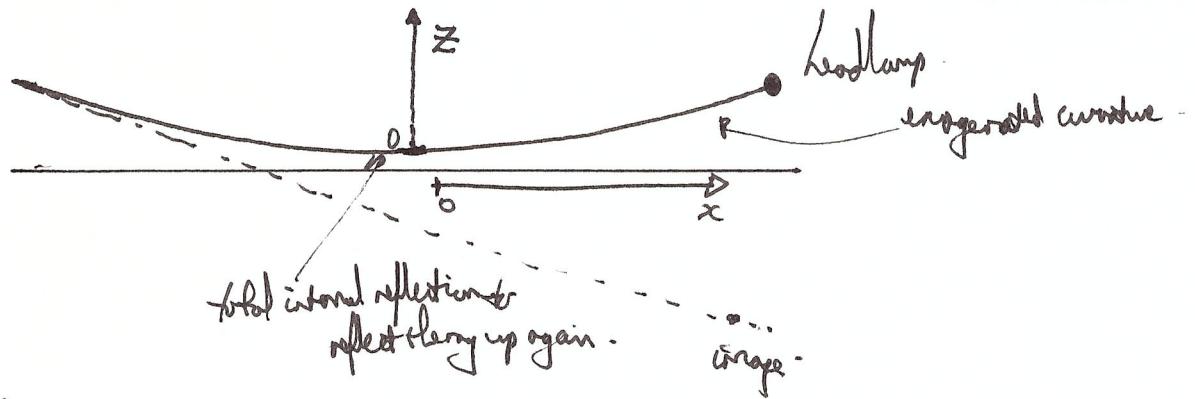 Z
headlamp
exagerated curvature
O
O
x
total internal reflection to
reflect the ray up again.
image.